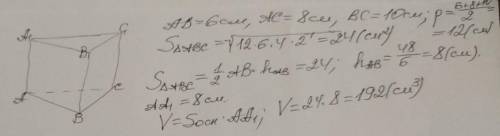 A₁ C B₁ A C B
AB=6см, AC=8см, BC=10см; p=(6+8+10)/2
S△ABC=√12·6·4·2=24(см²) =12(см)
S△ABC=1/2·AB·hAB=24; hAB=48/6=8(см).
AA₁=8см.
V=Sосн·AA₁; V=24·8=192(см³)